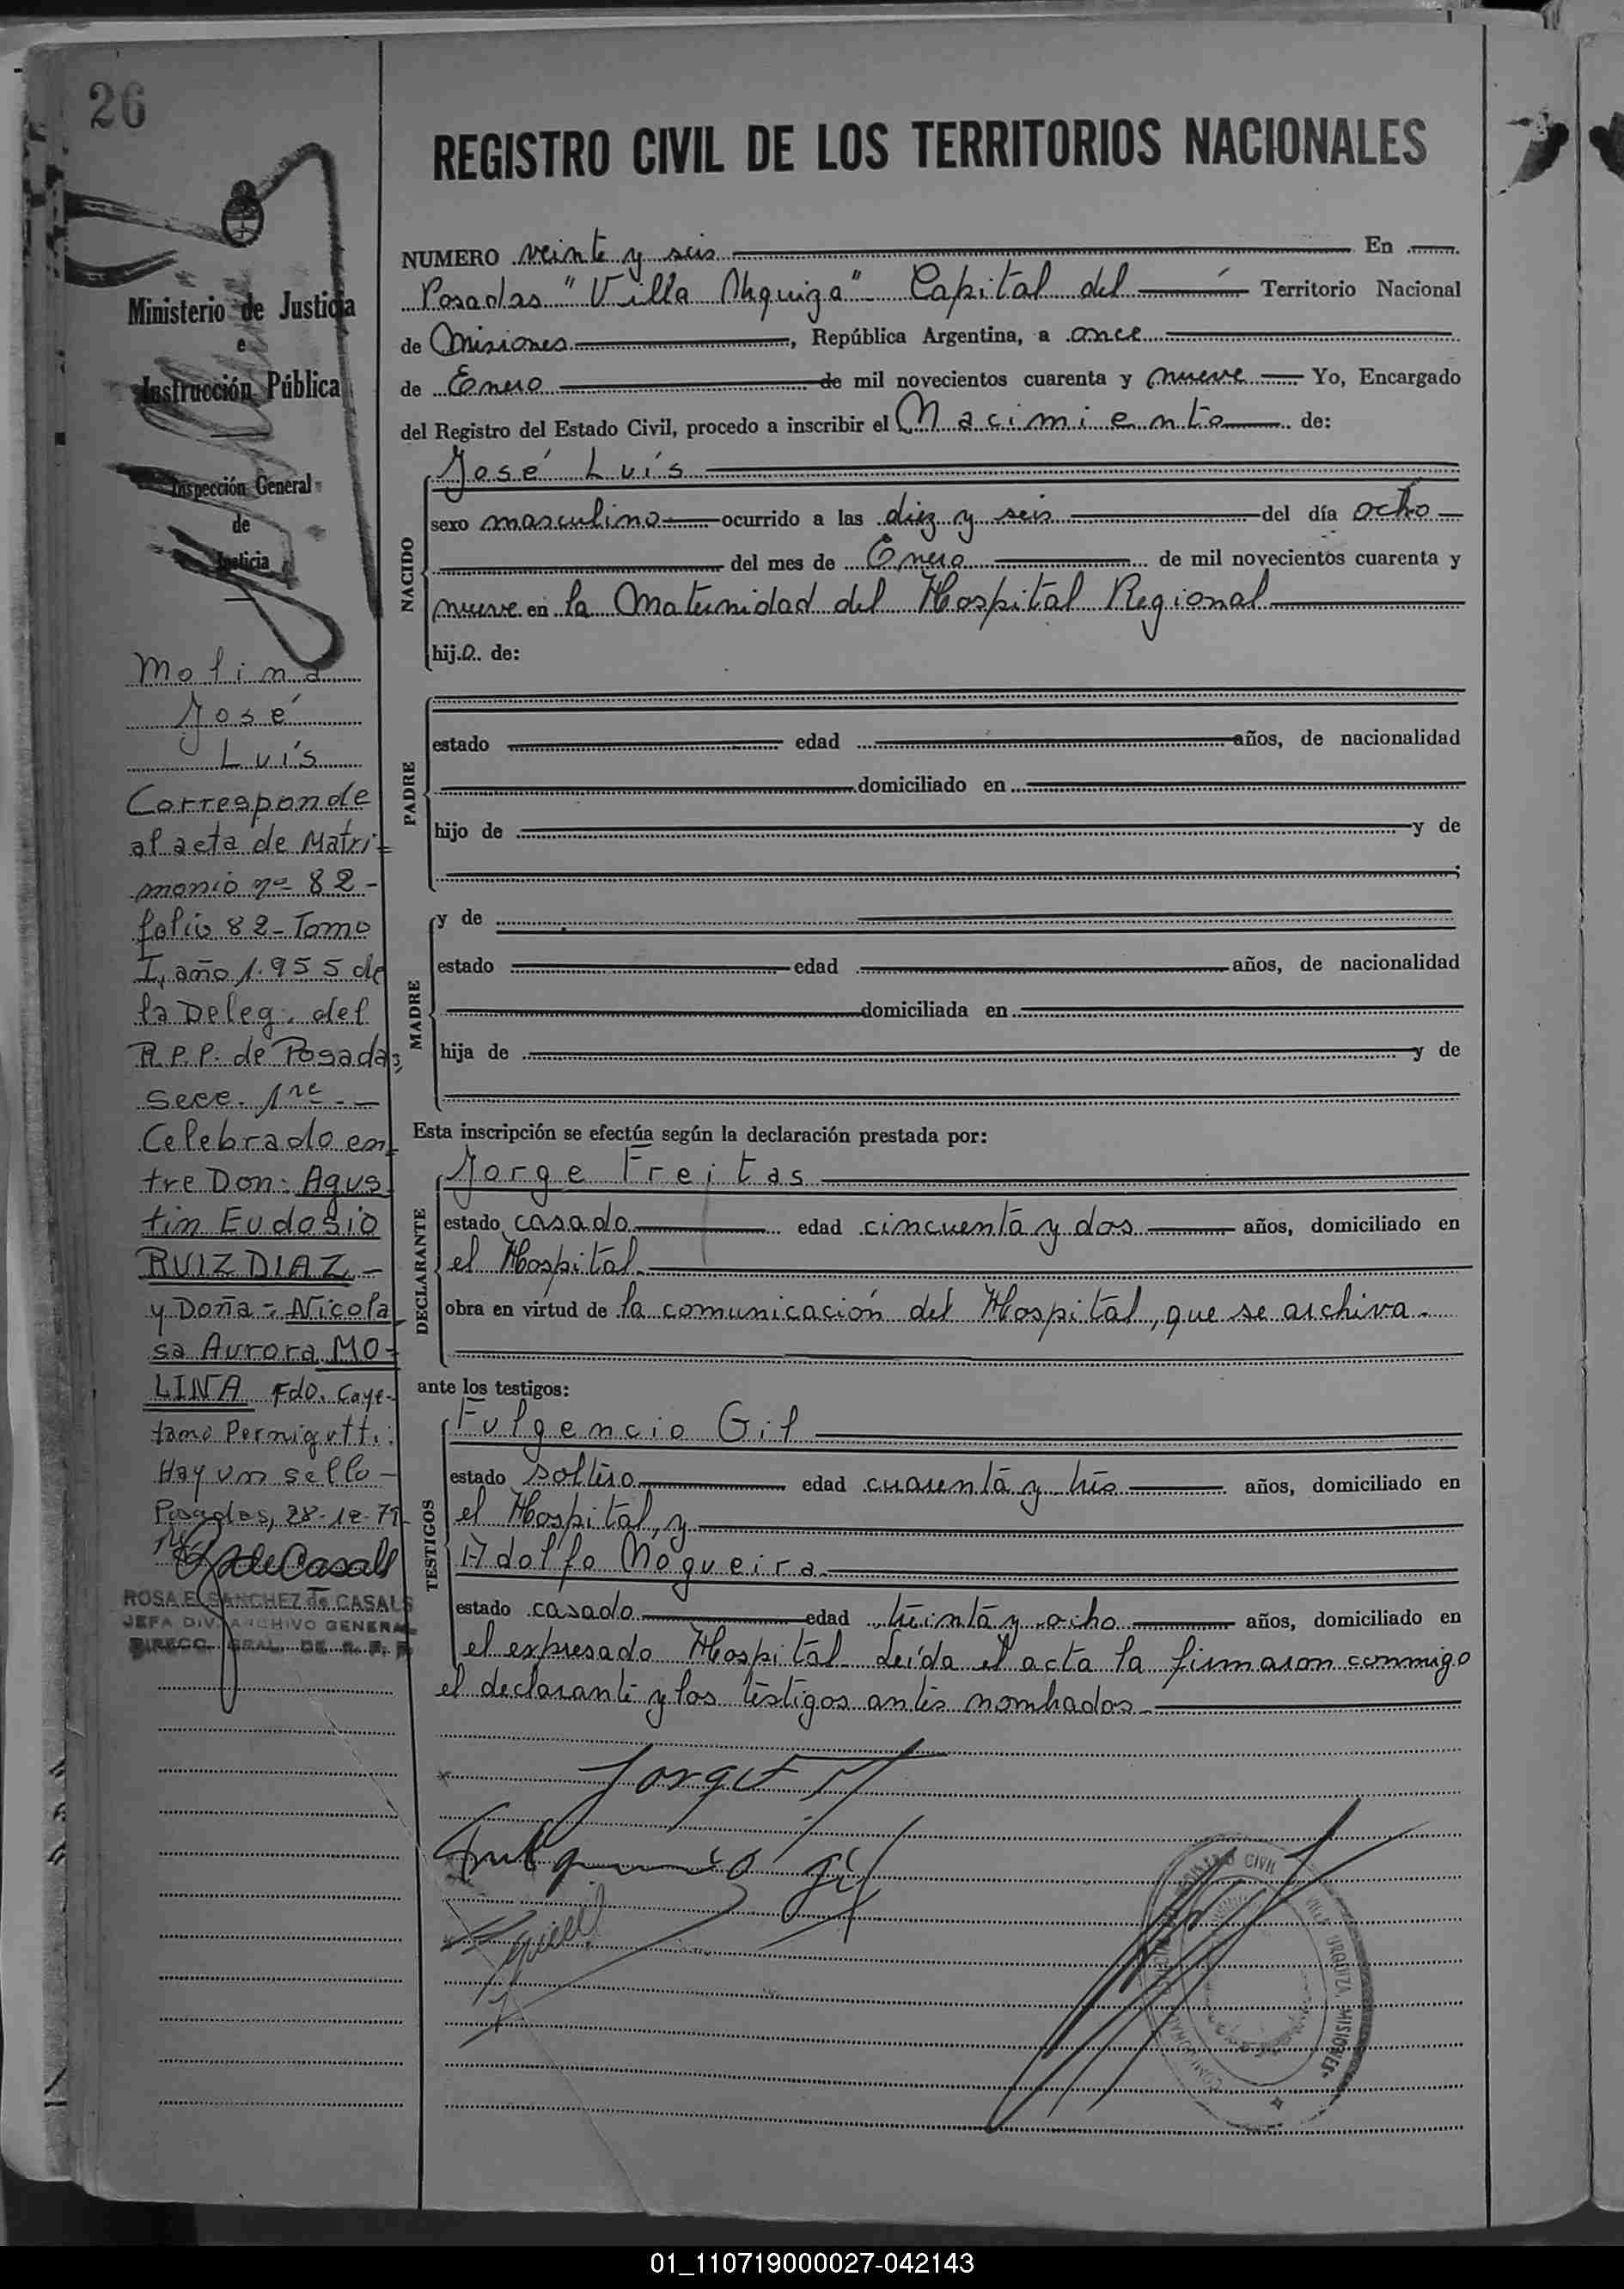 26
Ministerio de Justicia
e
Instrucción Pública
Inspección General
de
Justicia
Molina
José
Luís
Corresponde
al acta de Matri=
monio nº 82-
folio 82-Tomo
I, año 1.955 de
la Deleg. del
R.P.P. de Posadas,
Secc. 1ra.-
Celebrado en
tre Don: Agus
tin Eudosio
RUIZ DIAZ-
y Doña: Nicola
sa Aurora MO-
LINA Fdo. Caye-
tano Pernigotti.
Hay un sello-
Posadas, 28-12-79-
ROSA E. SANCHEZ de CASALS
JEFA DIV. ARCHIVO GENERAL
DIRECC. GRAL. DE R. P. P.
REGISTRO CIVIL DE LOS TERRITORIOS NACIONALES
NUMERO veinte y seis En
Posadas "Villa Urquiza" Capital del Territorio Nacional
de Misiones, República Argentina, a once
de Enero de mil novecientos cuarenta y nueve Yo, Encargado
del Registro del Estado Civil, procedo a inscribir el Nacimiento de:
NACIDO
José Luís
sexo masculino ocurrido a las diez y seis del día ocho
del mes de Enero de mil novecientos cuarenta y
nueve en la Maternidad del Hospital Regional
hijo de:
PADRE
estado edad años, de nacionalidad
domiciliado en
hijo de y de
MADRE
y de
estado edad años, de nacionalidad
domiciliada en
hija de y de
Esta inscripción se efectúa según la declaración prestada por:
DECLARANTE
Jorge Freitas
estado casado edad cincuenta y dos años, domiciliado en
el Hospital
obra en virtud de la comunicación del Hospital, que se archiva.
ante los testigos:
TESTIGOS
Fulgencio Gil
estado soltero edad cuarenta y tres años, domiciliado en
el Hospital, y
Adolfo Nogueira
estado casado edad treinta y ocho años, domiciliado en
el expresado Hospital. Leída el acta la firmaron conmigo
el declarante y los testigos antes nombrados.
Jorge F
Fulgencio Gil
REGISTRO CIVIL
VILLA URQUIZA MISIONES
01_110719000027-042143